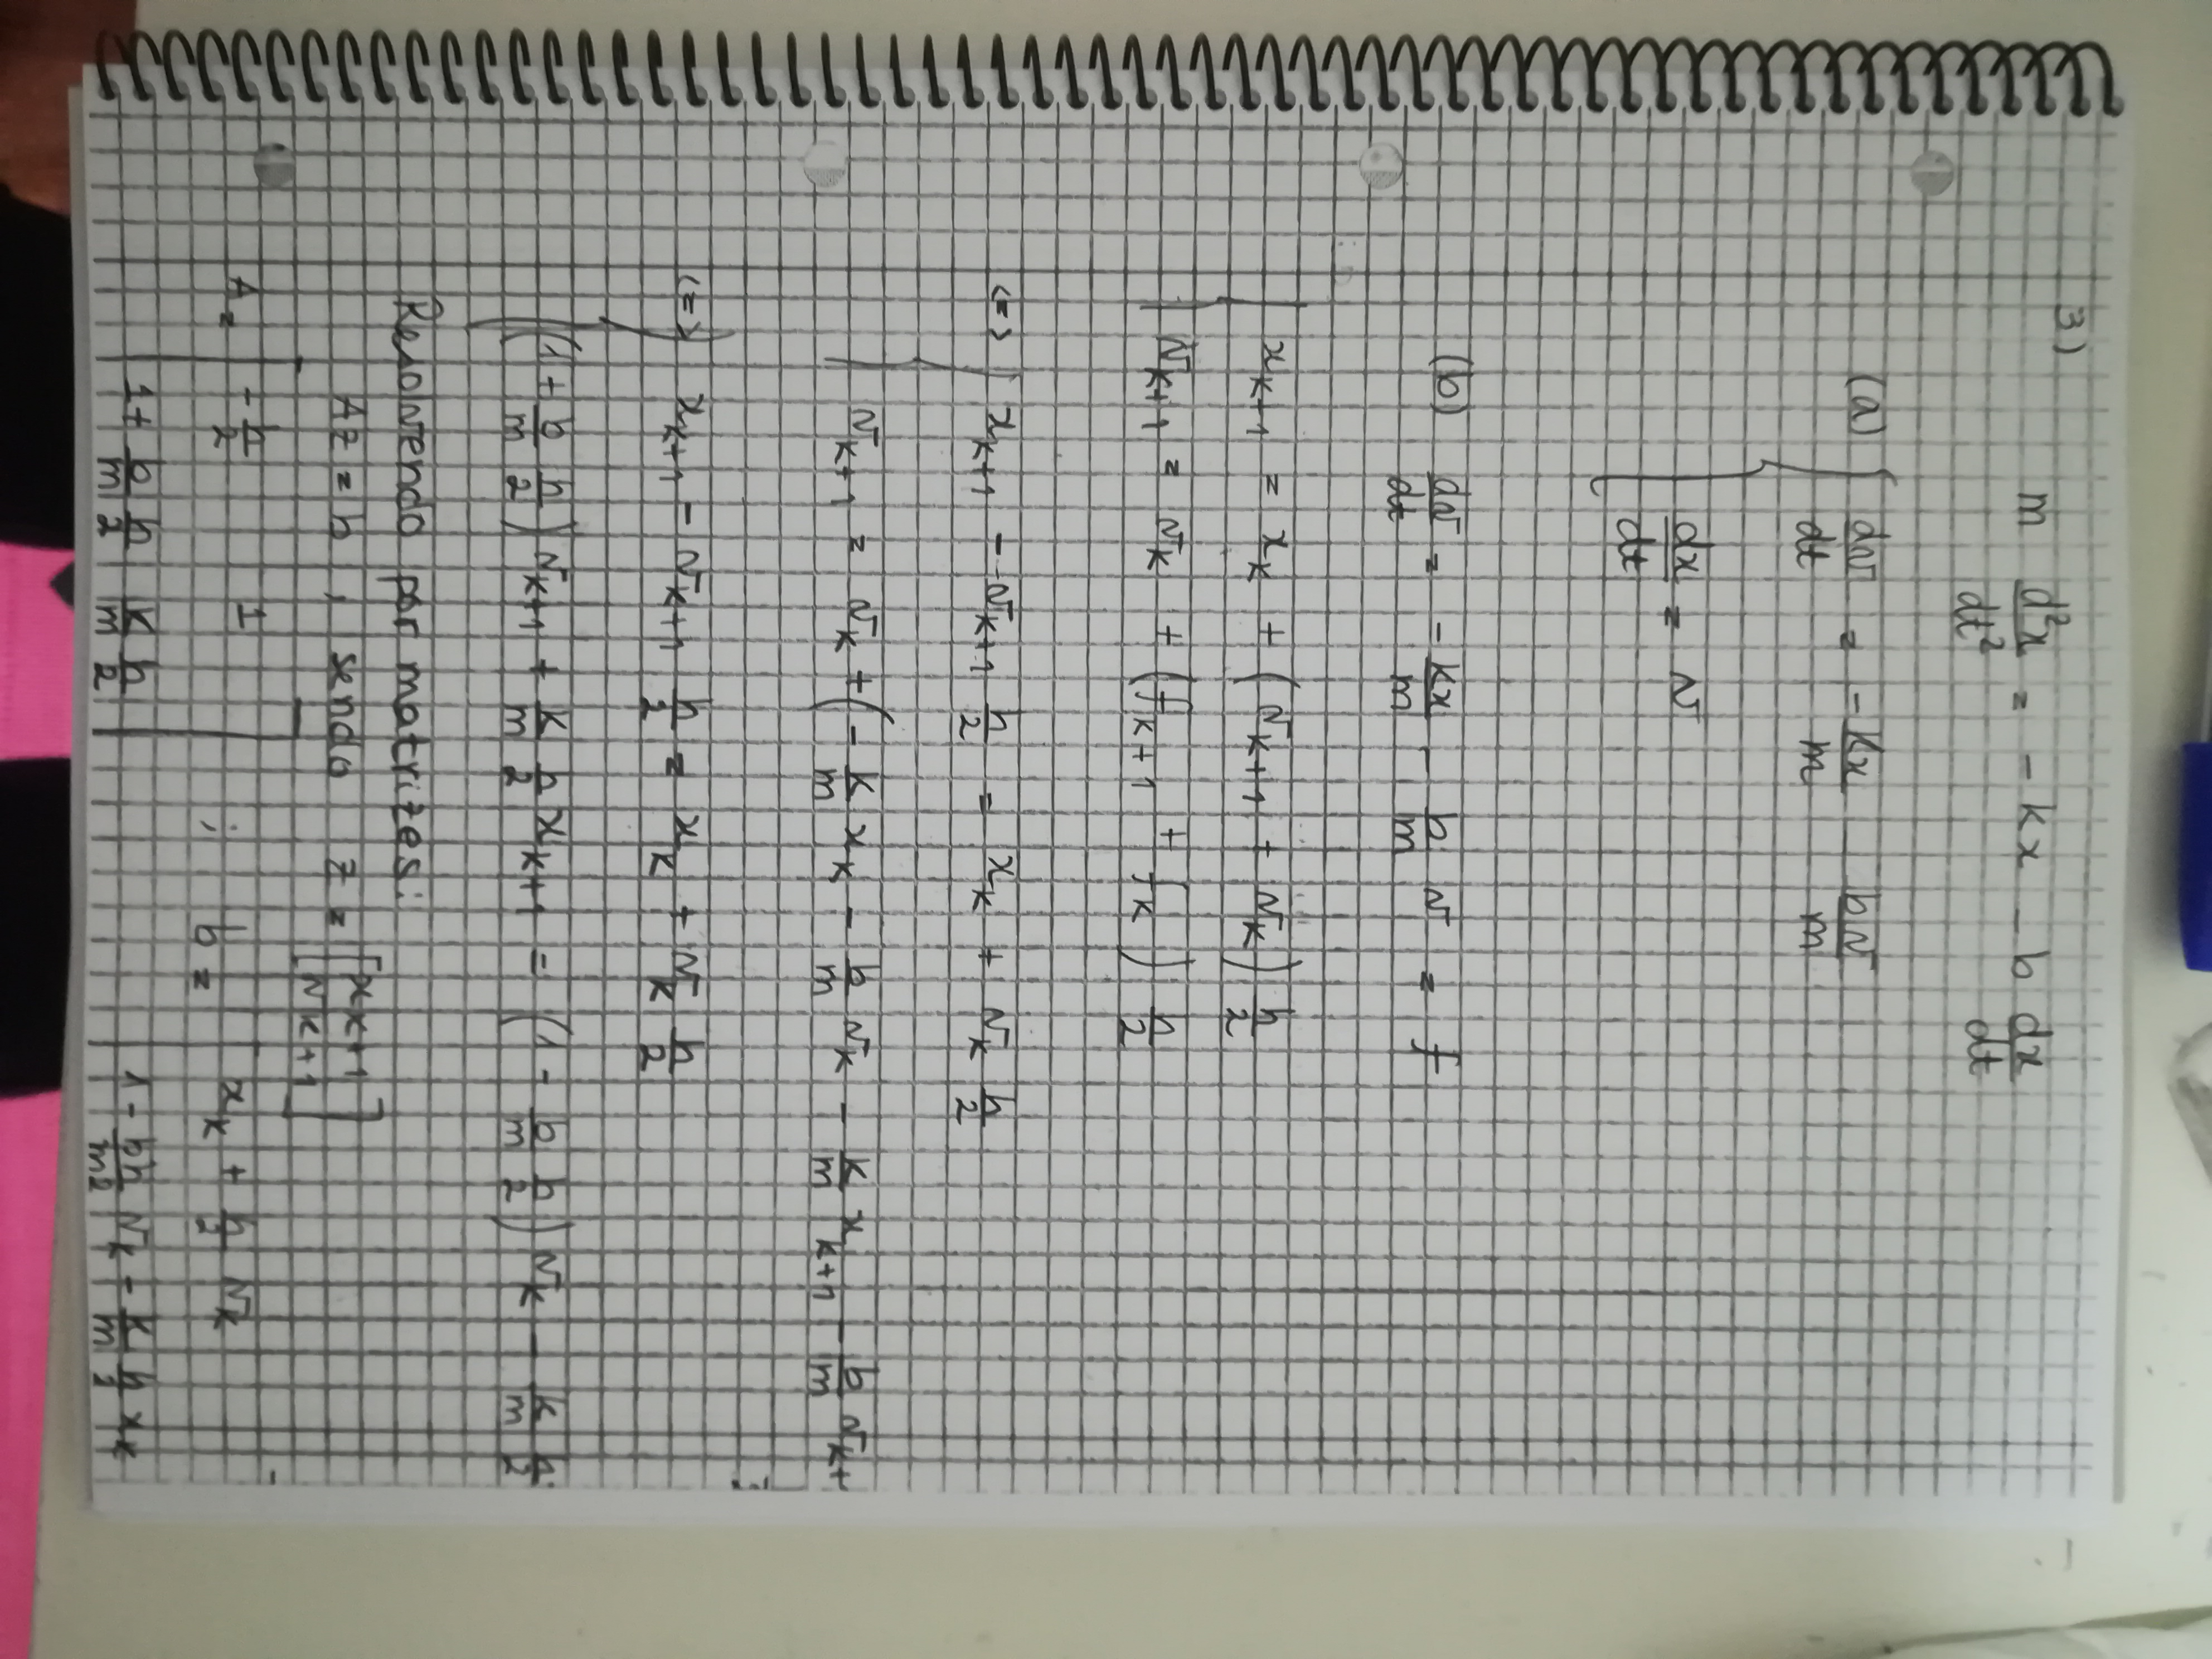 3)
m d²x/dt² = - kx - b dx/dt
(a) { dv/dt = - kx/m   bv/m
dx/dt = v
(b) dv/dt = - kx/m - b/m v = f
{ x_{k+1} = x_k + (v_{k+1} + v_k) h/2
v_{k+1} = v_k + (f_{k+1} + f_k) h/2
<=> { x_{k+1} - v_{k+1} h/2 = x_k + v_k h/2
v_{k+1} = v_k + (- k/m x_k - b/m v_k - k/m x_{k+1} - b/m v_{k+
<=> { x_{k+1} - v_{k+1} h/2 = x_k + v_k h/2
(1 + b/m h/2) v_{k+1} + k/m h/2 x_{k+1} = (1 - b/m h/2) v_k - k/m h/2
Resolvendo por matrizes:
Az = b , sendo z = [x_{k+1}
v_{k+1}]
A = [ - h/2   1 ] ; b = x_k + h/2 v_k
1 + b/m h/2   k/m h/2   1 - bh/m2 v_k - k/m h/2 x_k